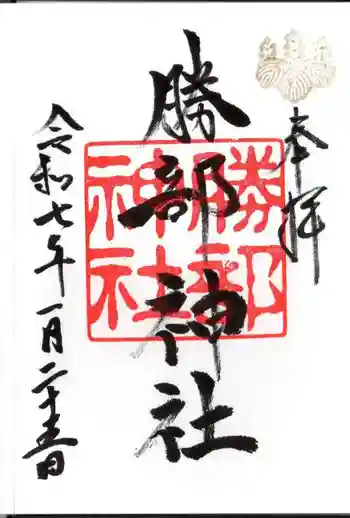 奉拝
勝部神社
勝部
神社
令和七年一月二十五日